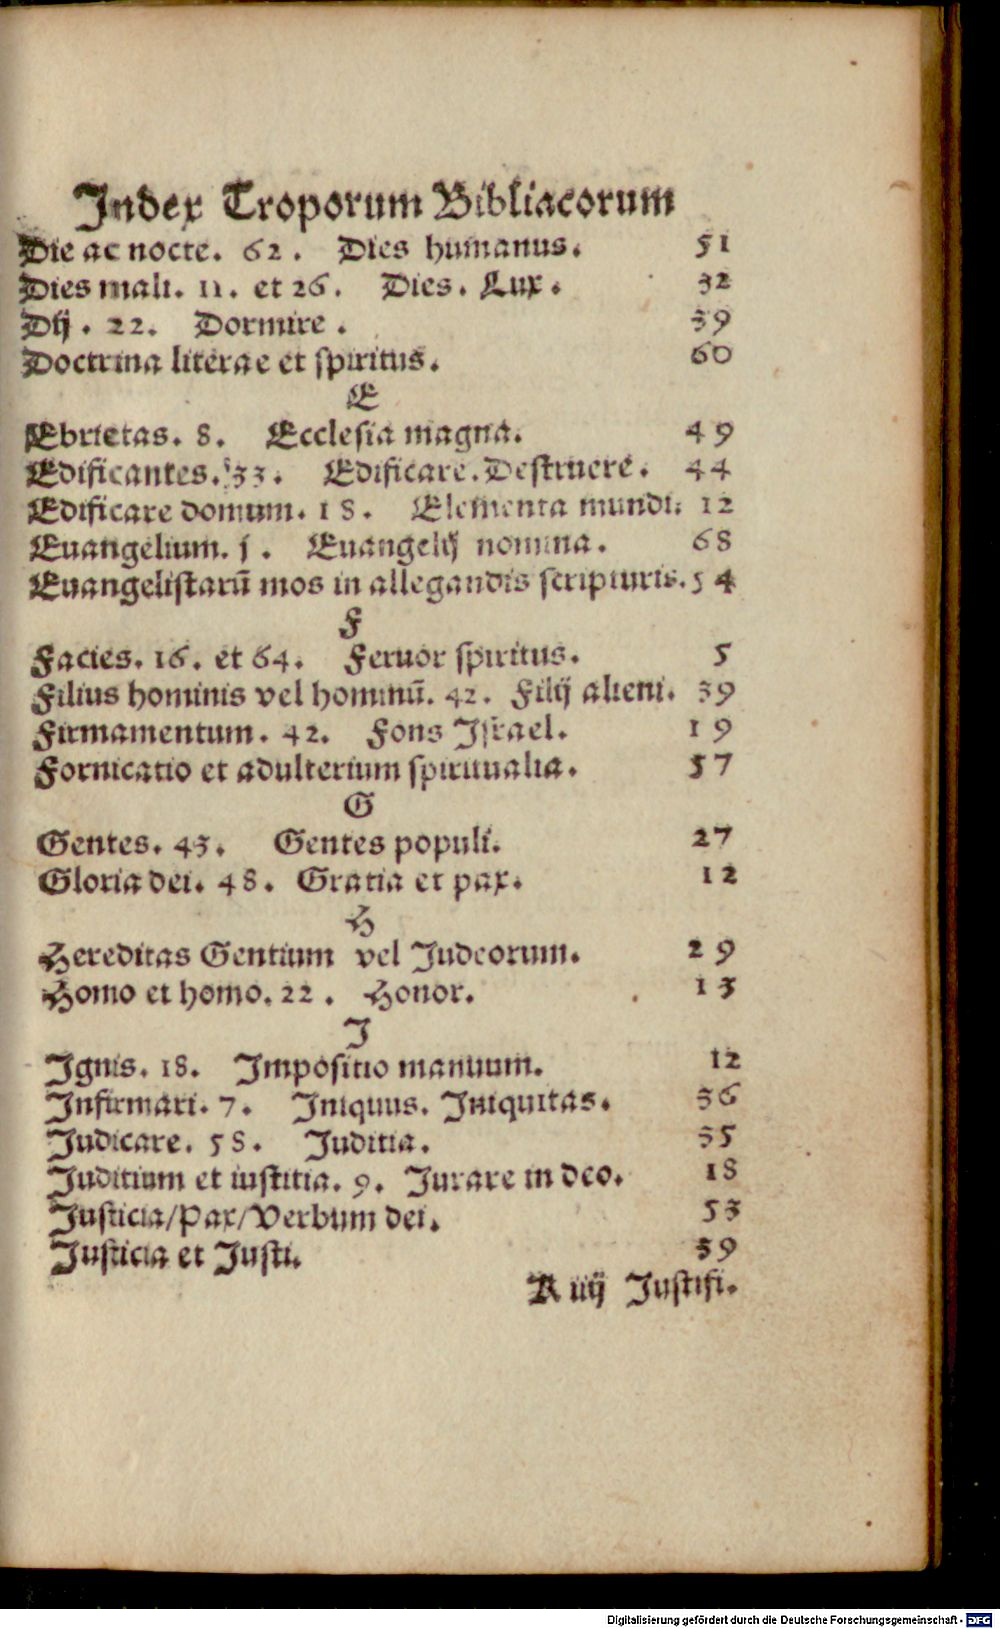 Index Troporum Bibliacorum
Die ac nocte. 62. Dies humanus. 51
Dies mali. 11. et 26. Dies. Lux. 32
Dij. 22. Dormire. 39
Doctrina literae et spiritus. 60
E
Ebrietas. 8. Ecclesia magna. 49
Edificantes. 33. Edificare. Destruere. 44
Edificare domum. 18. Elementa mundi. 12
Euangelium. j. Euangelij nomina. 68
Euangelistarū mos in allegandis scripturis. 54
F
Facies. 16. et 64. Feruor spiritus. 5
Filius hominis vel hominū. 42. Filij alieni. 39
Firmamentum. 42. Fons Israel. 19
Fornicatio et adulterium spiritualia. 57
G
Gentes. 43. Gentes populi. 27
Gloria dei. 48. Gratia et pax. 12
H
Hereditas Gentium vel Judeorum. 29
Homo et homo. 22. Honor. 13
I
Ignis. 18. Impositio manuum. 12
Infirmari. 7. Iniquus. Iniquitas. 36
Judicare. 58. Juditia. 35
Juditium et iustitia. 9. Jurare in deo. 18
Justicia/Pax/Verbum dei. 53
Justicia et Justi. 39
K iiij Justifi.
Digitalisierung gefördert durch die Deutsche Forschungsgemeinschaft - DFG